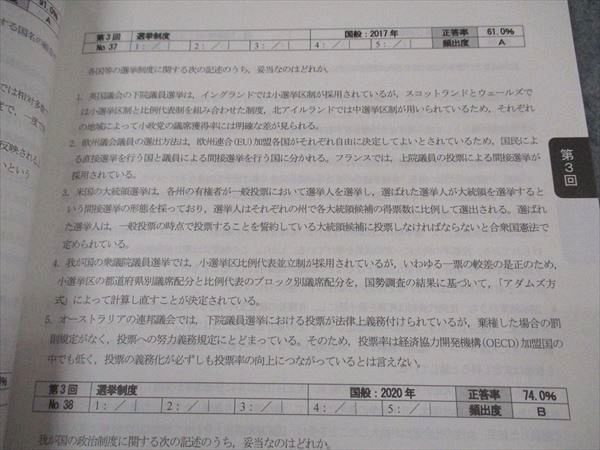 91.0%
A
第3回 選挙制度 国般：2017年 正答率 61.0%
No 37 1：／ 2：／ 3：／ 4：／ 5：／ 頻出度 A
各国等の選挙制度に関する次の記述のうち，妥当なのはどれか。
1. 英国議会の下院議員選挙は，イングランドでは小選挙区制が採用されているが，スコットランドとウェールズで
は小選挙区制と比例代表制を組み合わせた制度，北アイルランドでは中選挙区制が用いられているため，それぞれ
の地域によって小政党の議席獲得率には明確な差が見られる。
2. 欧州議会議員の選出方法は，欧州連合(EU)加盟各国がそれぞれ自由に決定してよいとされているため，国民によ
る直接選挙を行う国と議員による間接選挙を行う国に分かれる。フランスでは，上院議員の投票による間接選挙が
採用されている。
3. 米国の大統領選挙は，各州の有権者が一般投票において選挙人を選挙し，選ばれた選挙人が大統領を選挙すると
いう間接選挙の形態を採っており，選挙人はそれぞれの州で各大統領候補の得票数に比例して選出される。選ばれ
た選挙人は，一般投票の時点で投票することを誓約している大統領候補に投票しなければならないと合衆国憲法で
定められている。
4. 我が国の衆議院議員選挙では，小選挙区比例代表並立制が採用されているが，いわゆる一票の較差の是正のため，
小選挙区の都道府県別議席配分と比例代表のブロック別議席配分を，国勢調査の結果に基づいて，「アダムズ方
式」によって計算し直すことが決定されている。
5. オーストラリアの連邦議会では，下院議員選挙における投票が法律上義務付けられているが，棄権した場合の罰
則規定がなく，投票への努力義務規定にとどまっている。そのため，投票率は経済協力開発機構(OECD)加盟国の
中でも低く，投票の義務化が必ずしも投票率の向上につながっているとは言えない。
第3回 選挙制度 国般：2020年 正答率 74.0%
No 38 1：／ 2：／ 3：／ 4：／ 5：／ 頻出度 B
我が国の政治制度に関する次の記述のうち，妥当なのはどれか。
第3回
する国名の
では相対多
まで，一度
反映される
いという